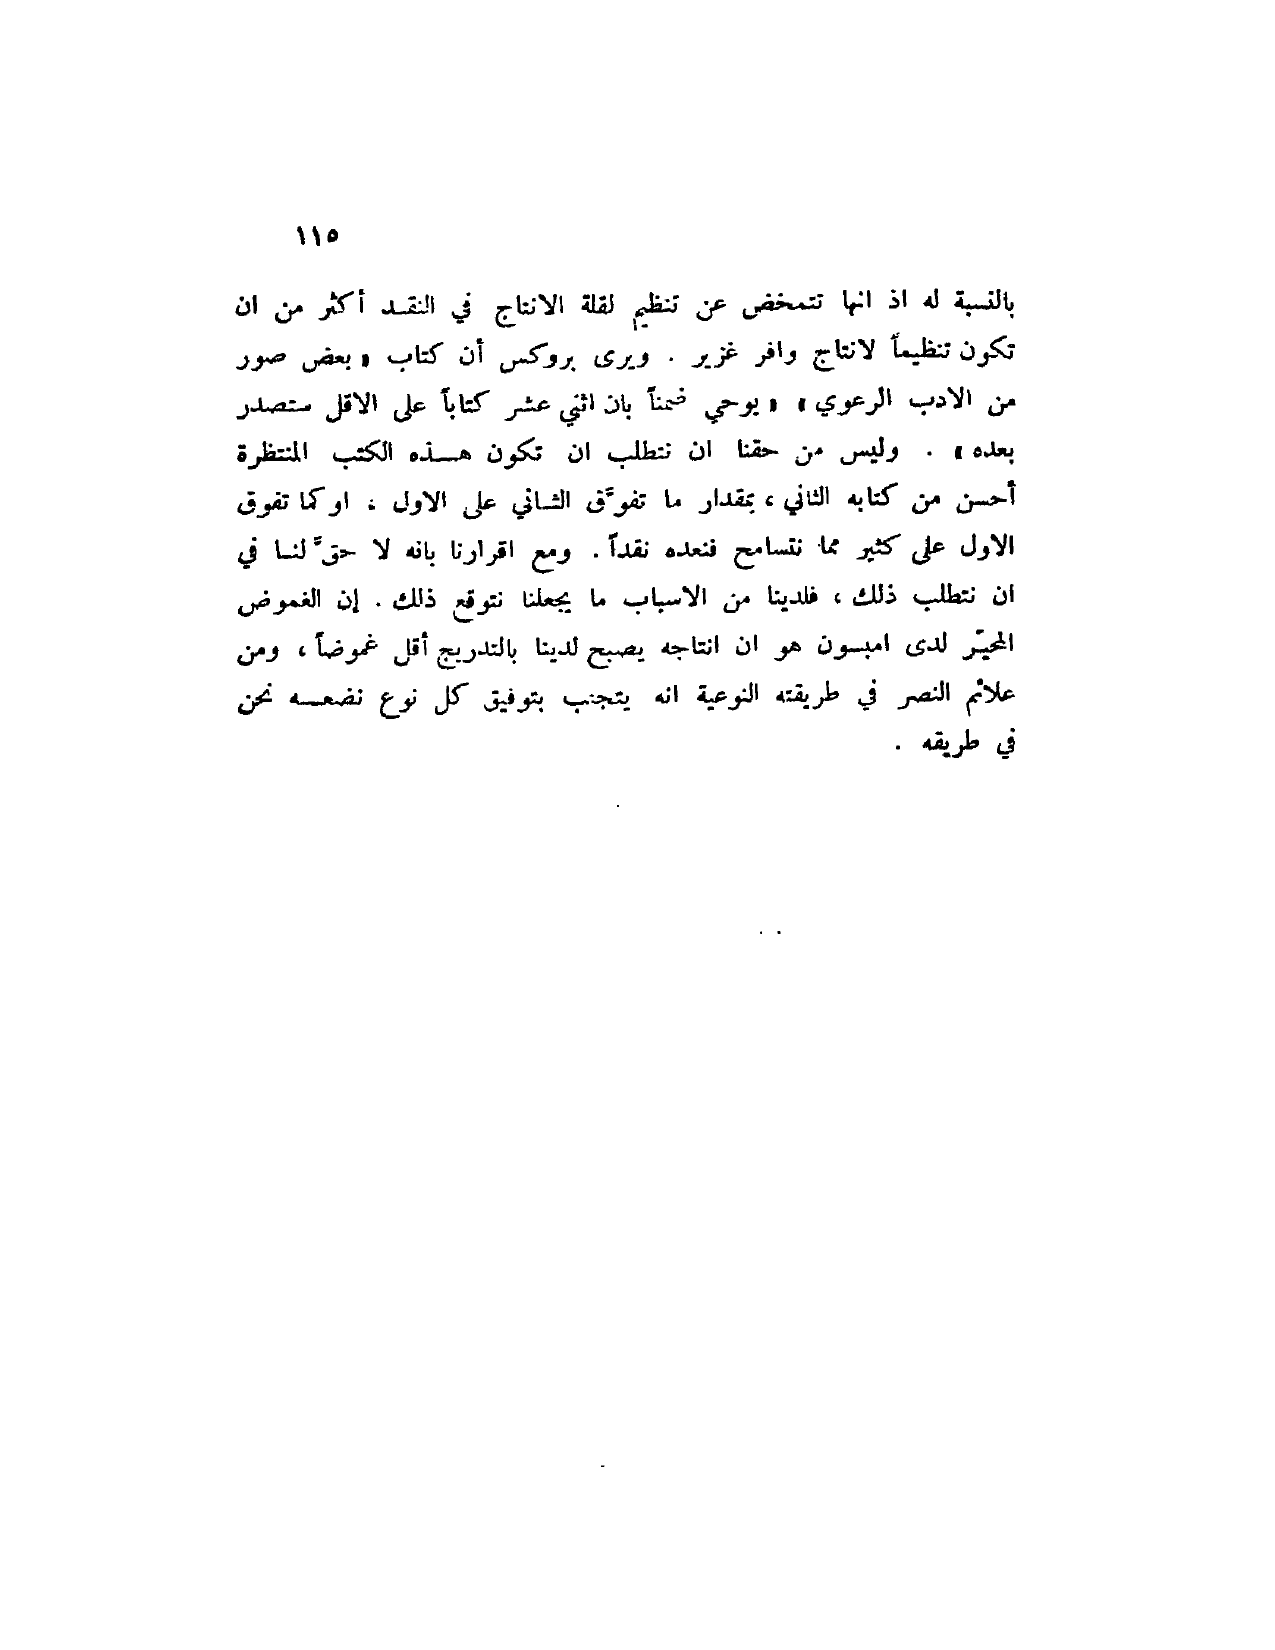 ١١٥
بالنسبة له اذ انها تتمخض عن تنظيم لقلة الانتاج في النقـد أكثر من ان
تكون تنظيماً لانتاج وافر غزير . ويرى بروكس أن كتاب « بعض صور
من الادب الرعوي » « يوحي ضمناً بان اثني عشر كتاباً على الاقل ستصدر
بعده » . وليس من حقنا ان نتطلب ان تكون هـذه الكتب المنتظرة
أحسن من كتابه الثاني ، بمقدار ما تفوَّق الثـاني على الاول ؛ او كما تفوق
الاول على كثير مما نتسامح فنعده نقداً . ومع اقرارنا بانه لا حقَّ لنـا في
ان نتطلب ذلك ، فلدينا من الاسباب ما يجعلنا نتوقع ذلك . إن الغموض
المحيّر لدى امبسون هو ان انتاجه يصبح لدينا بالتدريج أقل غموضاً ، ومن
علائم النصر في طريقته النوعية انه يتجنب بتوفيق كل نوع نضعـه نحن
في طريقه .